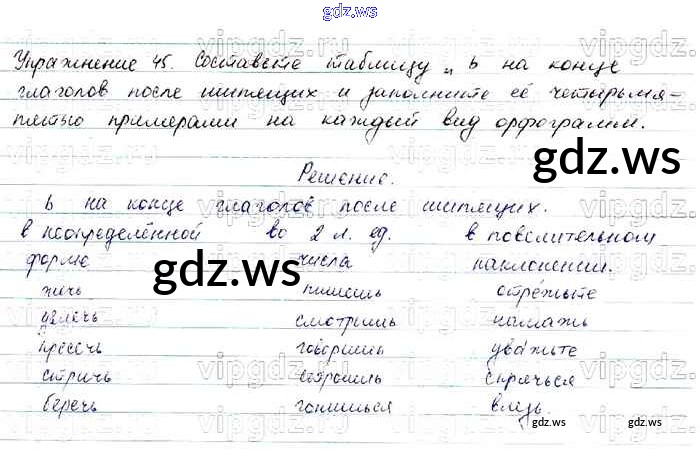 gdz.ws
Упражнение 45. Составьте таблицу „ь на конце
глаголов после шипящих и заполните её четырьмя-
пятью примерами на каждый вид орфограммы.
gdz.ws
Решение.
ь на конце глаголов после шипящих.
в неопределённой во 2 л. ед. в повелительном
форме числа наклонении.
gdz.ws
жечь пишешь отрежьте
увлечь смотришь намажь
пресечь говоришь уважьте
стричь строишь спрячься
беречь гонишься влезь.
gdz.ws gdz.ws